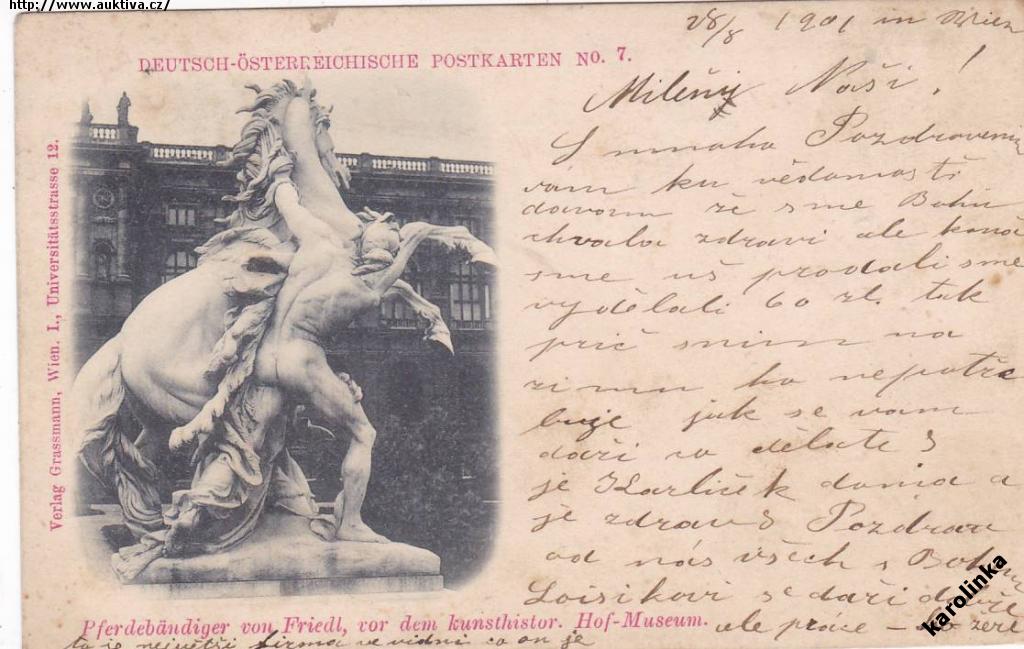 http://www.auktiva.cz/
28/8 1901 in Wien
DEUTSCH-ÖSTERREICHISCHE POSTKARTEN NO. 7.
Verlag Grassmann, Wien. I., Universitätsstrasse 12.
Milený Naši!
S mnoha Pozdravení
vám ku vědomosti
davam že sme Bohu
chvala zdravi ale koně
sme uš prodali sme
vydělali 60 zl. tak
prič snim na
zimu ho nepotře
buje jak se vam
daři co dělate?
je Karliček doma a
je zdrav? Pozdrav
od nás všech s Bohem
Loisikovi se daři dobře
ale práce
Pferdebändiger von Friedl, vor dem kunsthistor. Hof-Museum.
to je největši firma ve vidni co on je
karolinka